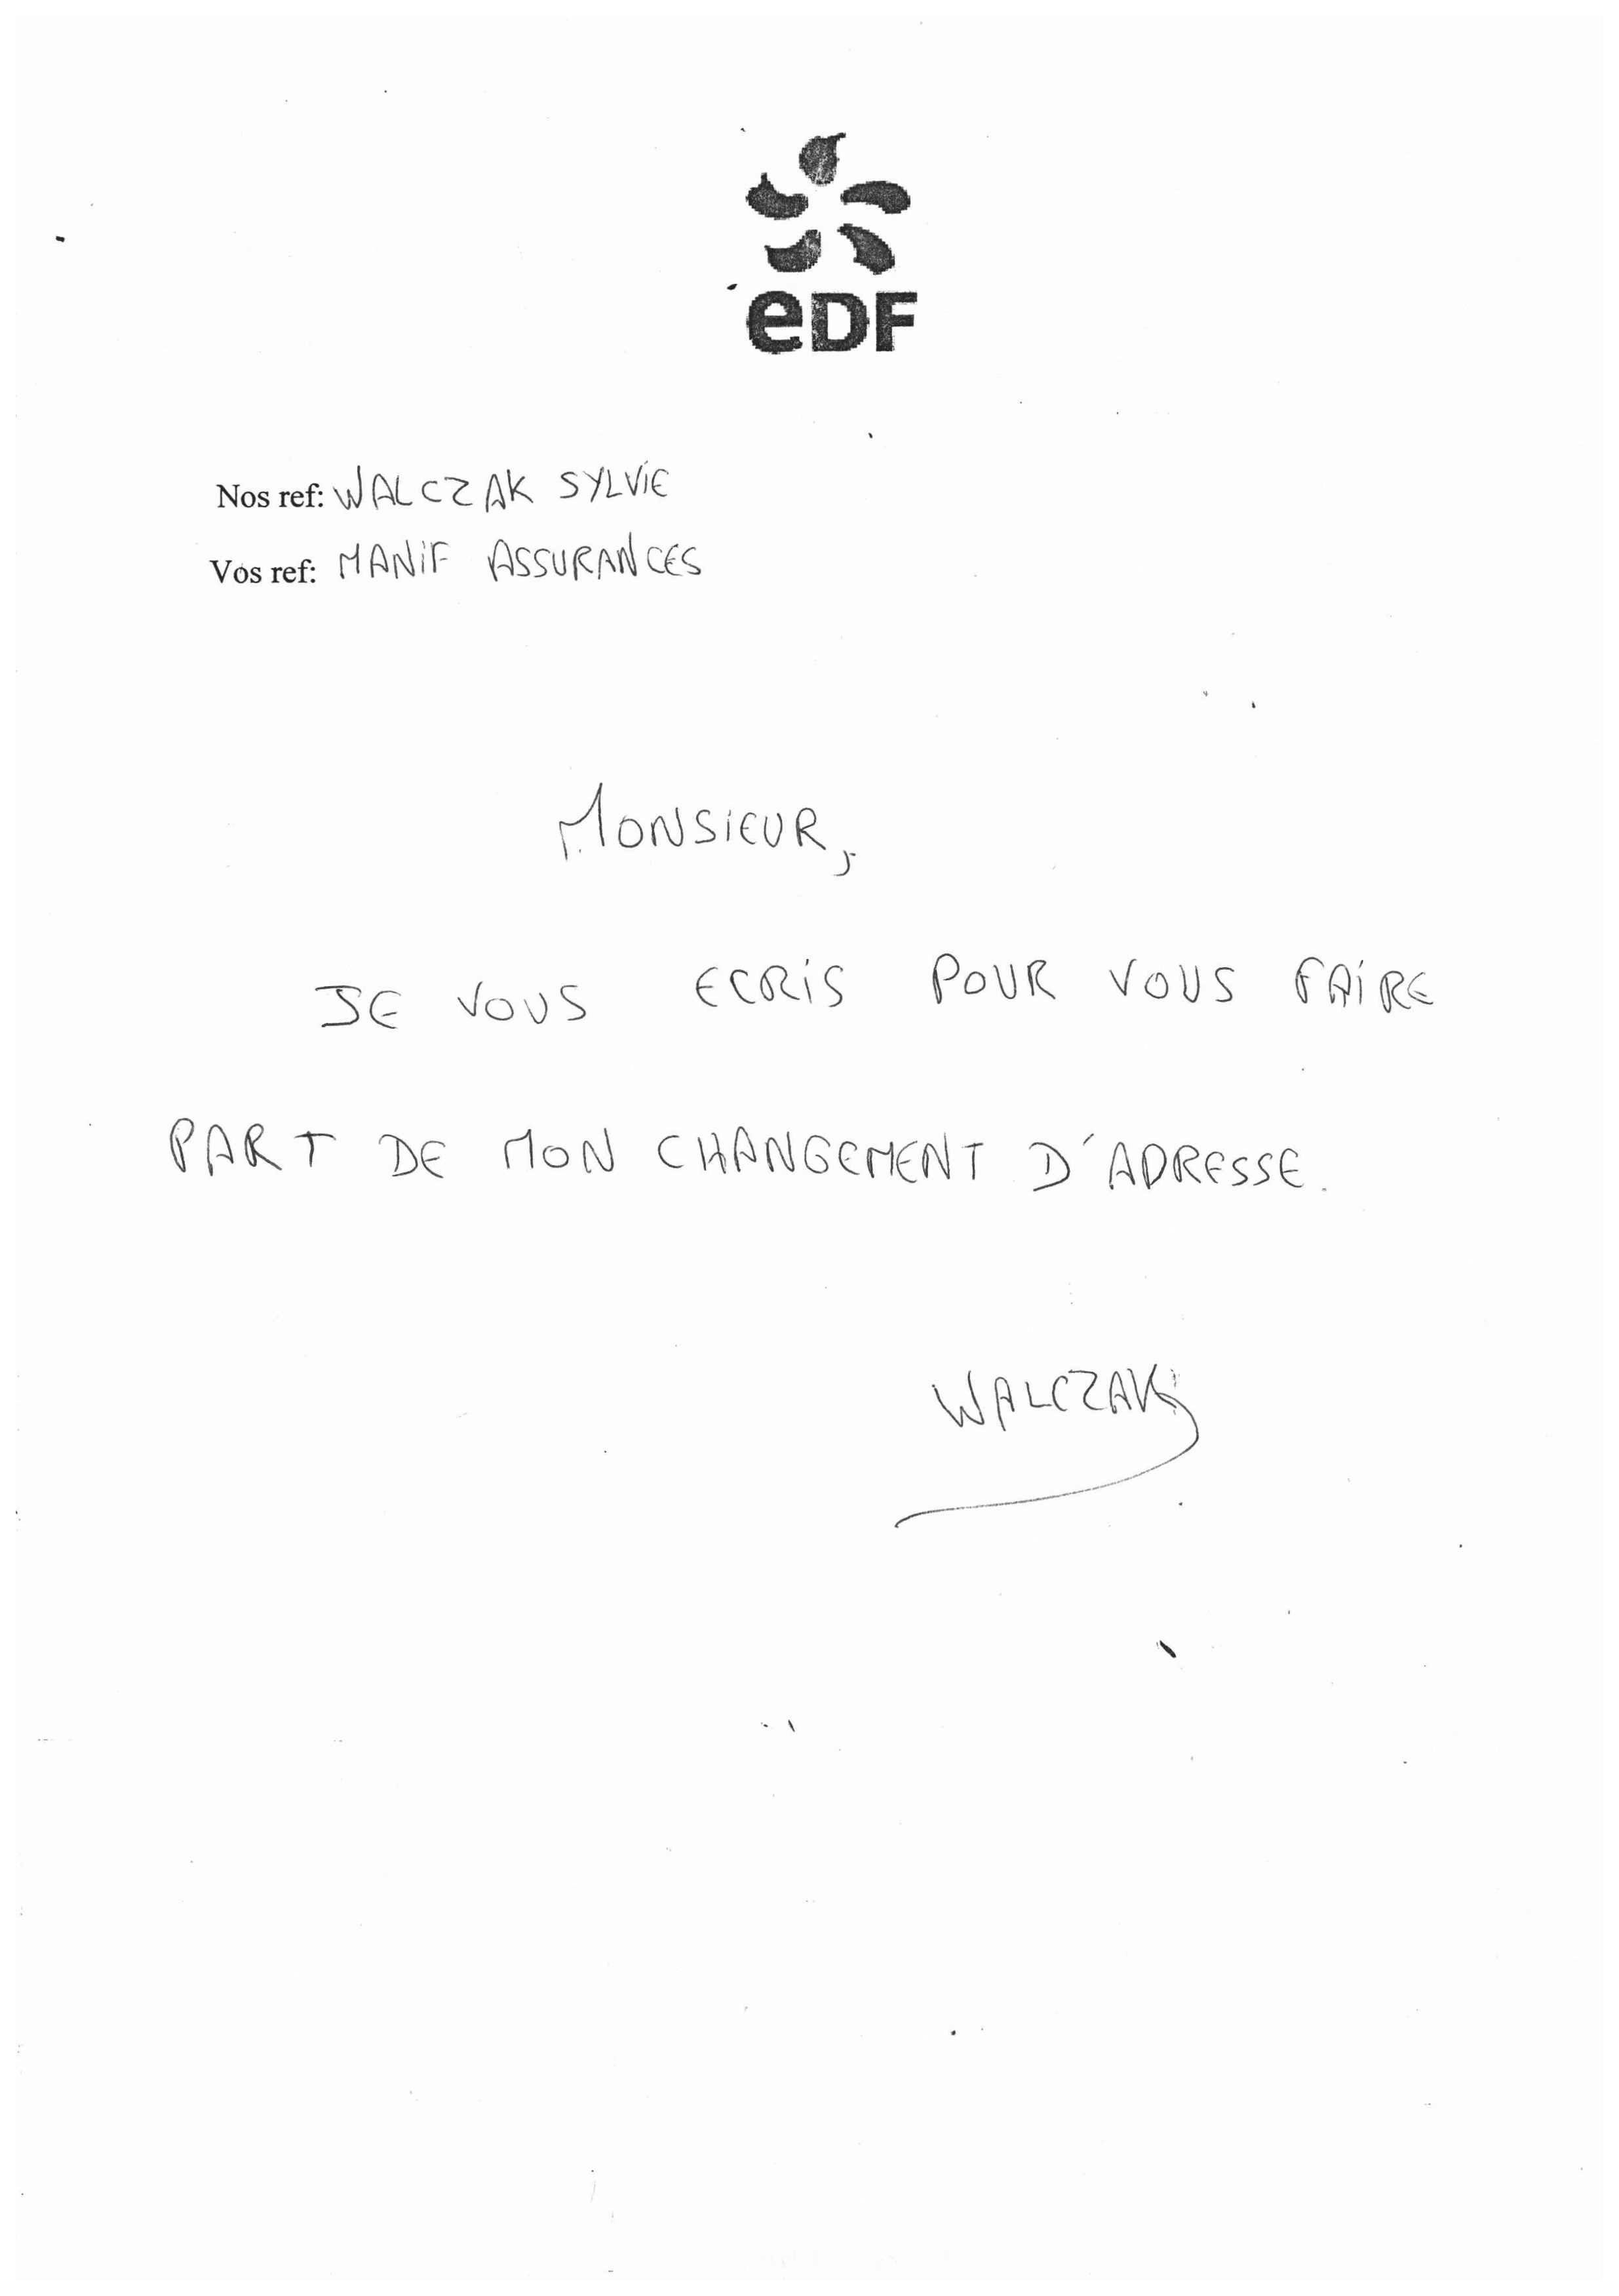 eDF
Nos ref: WALCZAK SYLVIE
Vos ref: MANIF ASSURANCES
MONSIEUR,
JE VOUS ECRIS POUR VOUS FAIRE
PART DE MON CHANGEMENT D'ADRESSE.
WALCZAK